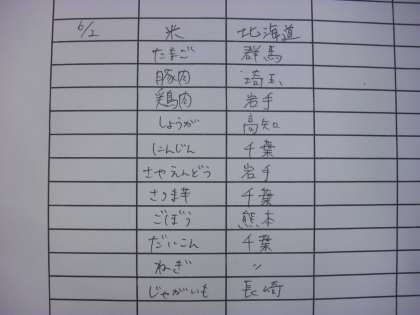 6/2 米 北海道
たまご 群馬
豚肉 埼玉
鶏肉 岩手
しょうが 高知
にんじん 千葉
さやえんどう 岩手
さつま芋 千葉
ごぼう 熊本
だいこん 千葉
ねぎ 〃
じゃがいも 長崎